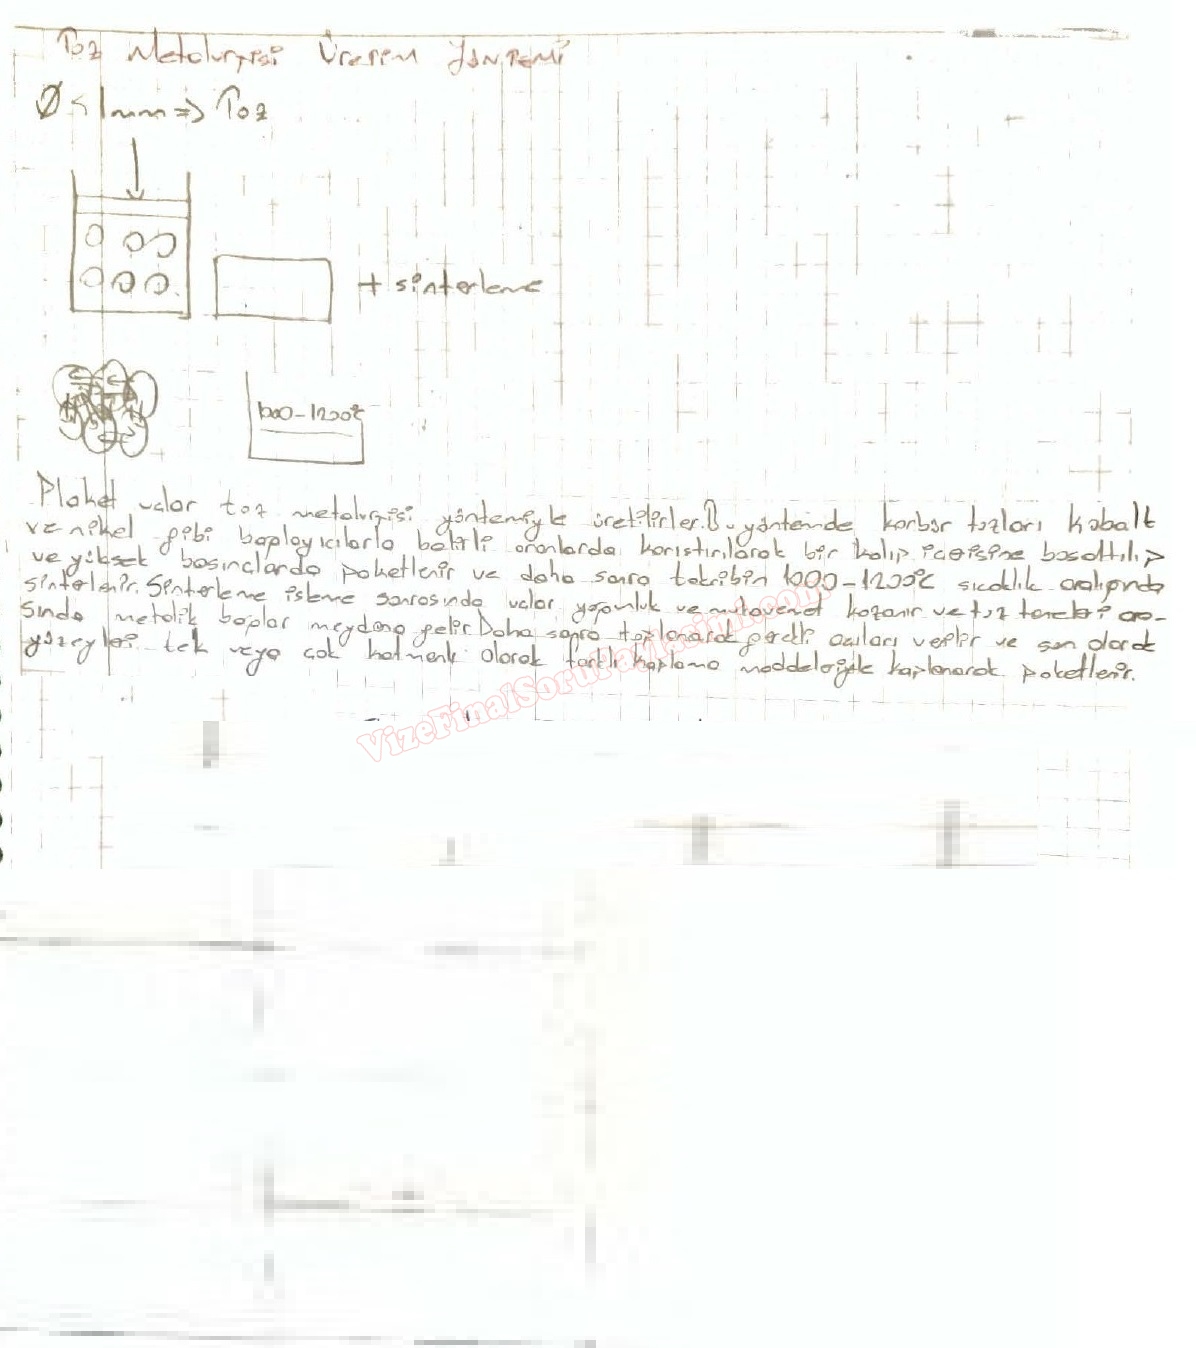 Toz Metalurjisi Üretim Yöntemi
Ø<1mm => Toz
+ sinterleme
1000-1200°C
Plaket uçlar toz metalurjisi yöntemiyle üretilirler. Bu yöntemde karbür tozları kobalt
ve nikel gibi bağlayıcılarla belirli oranlarda karıştırılarak bir kalıp içerisine boşaltılıp
ve yüksek basınçlarda paketlenir ve daha sonra takribin 1000-1200°C sıcaklık aralığında
sinterlenir. Sinterleme işleme sonrasında uçlar yoğunluk ve mukavemet kazanır ve toz taneleri ara-
sında metalik bağlar meydana gelir. Daha sonra toplanarak gerekli açıları verilir ve son olarak
yüzeyleri tek veya çok katmanlı olarak farklı kaplama maddeleriyle kaplanarak paketlenir.
VizeFinalSoruPaylasimi.com